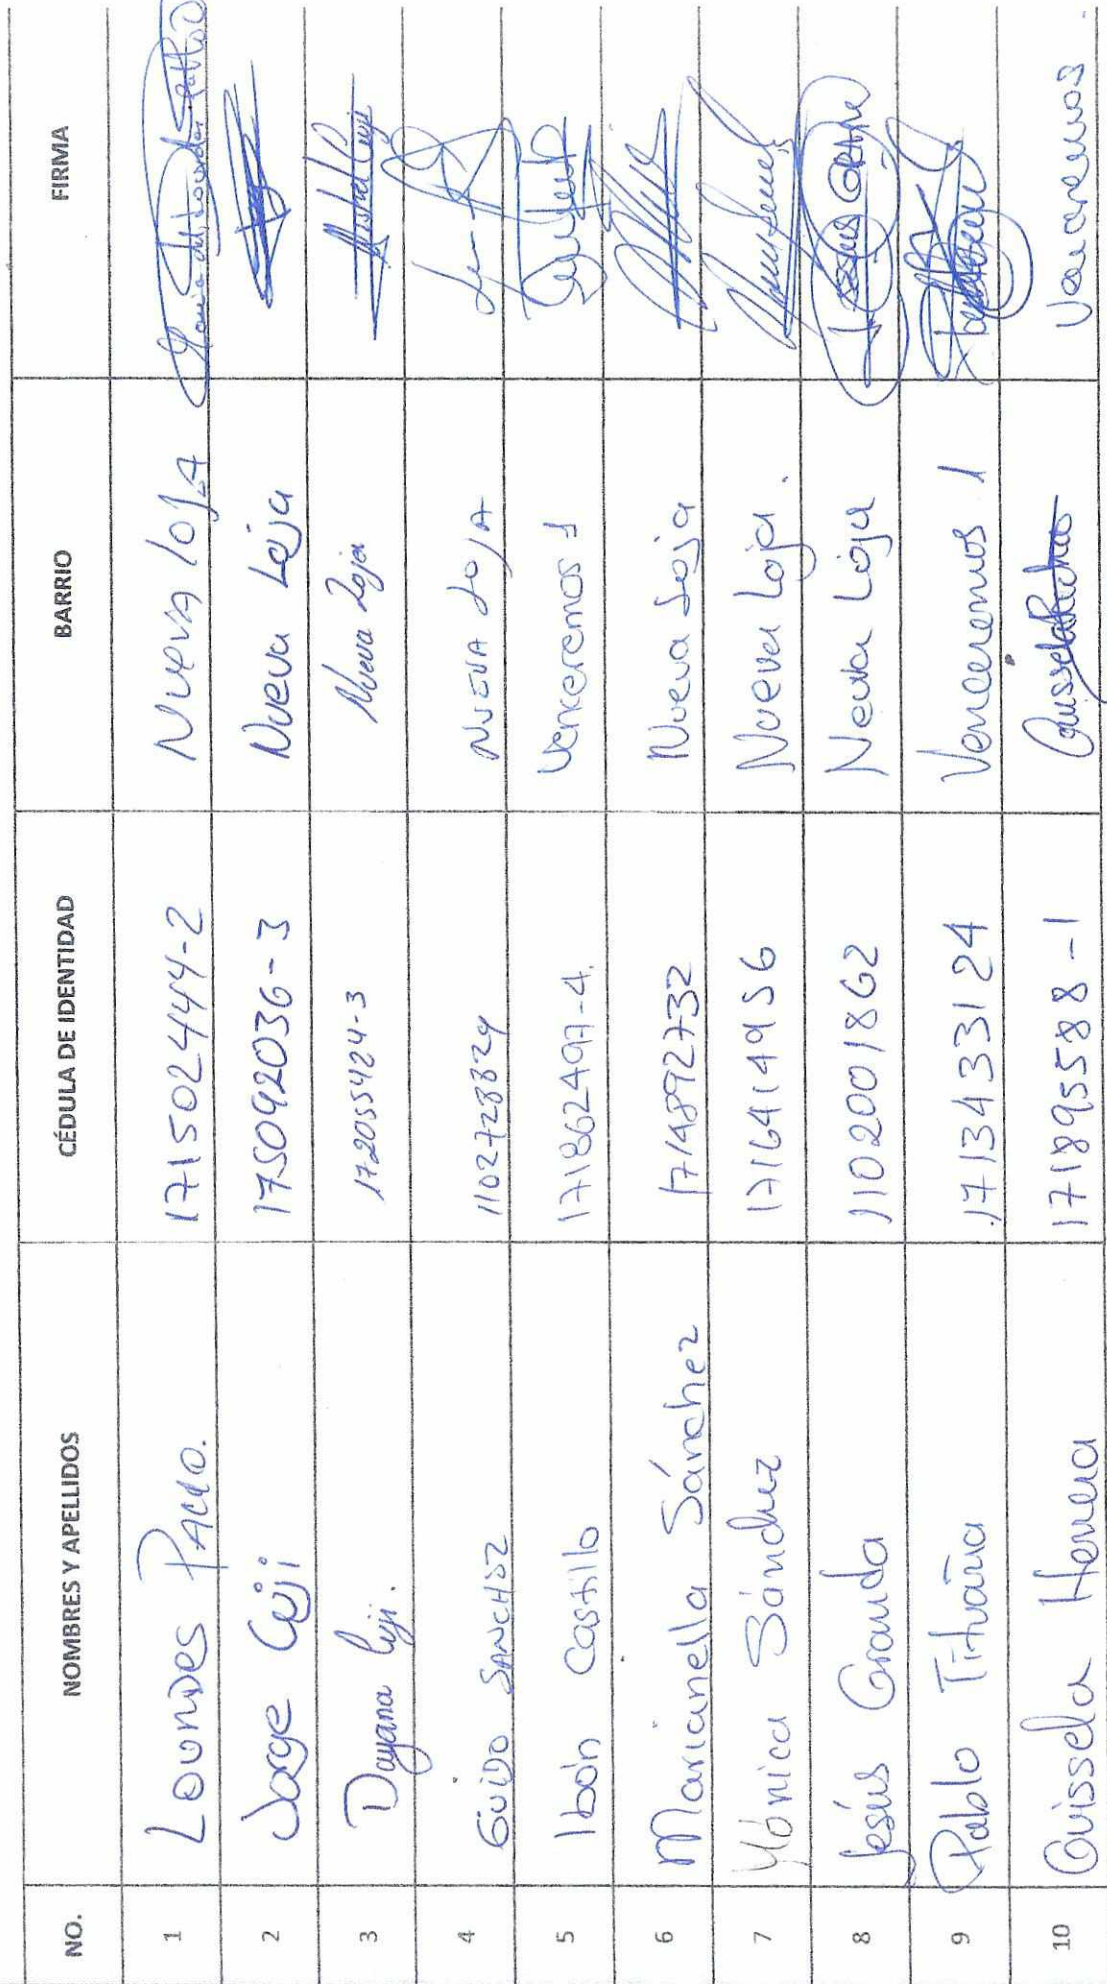 NO. NOMBRES Y APELLIDOS CÉDULA DE IDENTIDAD BARRIO FIRMA
1 Lourdes 171502444-2 Nueva loja
2 Jorge Cuji 175092036-3 Nueva Loja
3 Dayana Cuji. 172055424-3 Nueva Loja
4 Guido Sanchez 1102728824 Nueva Loja
5 Ibón Castillo 171862497-4. Venceremos 1
6 Marianella Sánchez 1714892732 Nueva Loja
7 Mónica Sánchez 1716414956 Nueva Loja.
8 Jesús Granda 1102001862 Nueva Loja
9 Pablo Tituaña 1713433124 Venceremos 1
10 Guissela Herrera 171895588-1 Venceremos.